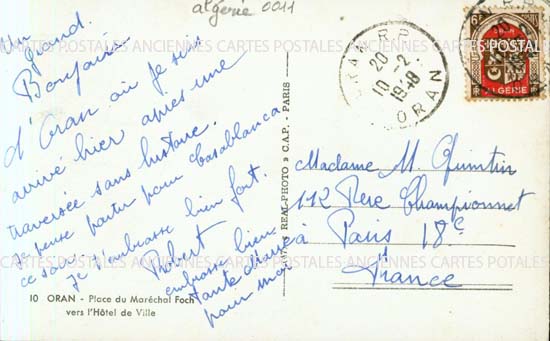 algérie 0011
CARTES POSTALES ANCIENNES CARTES POSTALES ANCIENNES CARTES POSTALES
Un
grand
Bonjour
d'Oran où je suis
arrivé hier après une
traversée sans histoire.
Je pense partir pour Casablanca
ce soir. Je t'embrasse bien fort.
Robert
embrasse bien
Tante
pour moi
10 ORAN - Place du Maréchal Foch
vers l'Hôtel de Ville
REAL-PHOTO C.A.P. - PARIS
ORAN R.P.
20
10-2
19
ORAN
6F
ORAN
ALGERIE
Madame M. Quintin
112 Rue Championnet
à Paris 18e
France